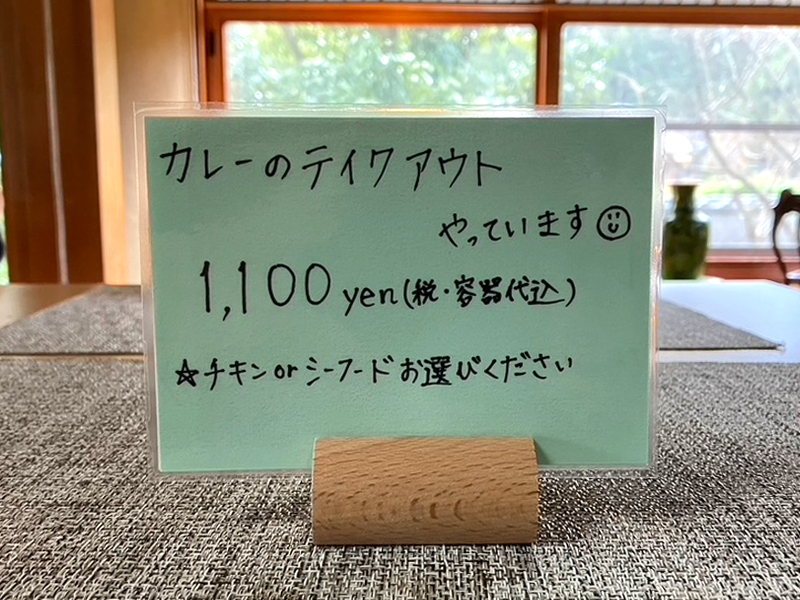 カレーのテイクアウト
やっています☺
1,100yen(税・容器代込)
☆チキンorシーフードお選びください